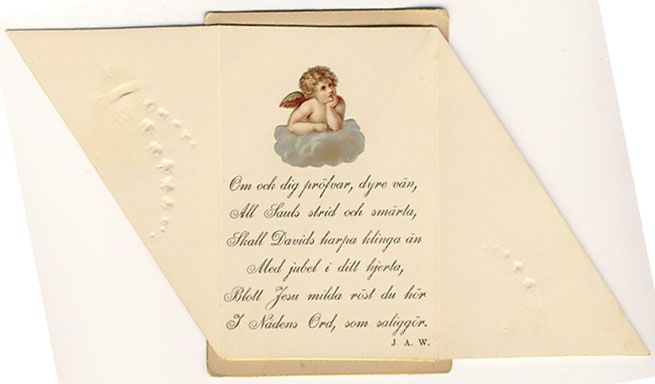 Om och dig pröfvar, dyre vän,
All Sauls strid och smärta,
Skall Davids harpa klinga än
Med jubel i ditt hjerta,
Blott Jesu milda röst du hör
I Nådens Ord, som saliggör.
J. A. W.